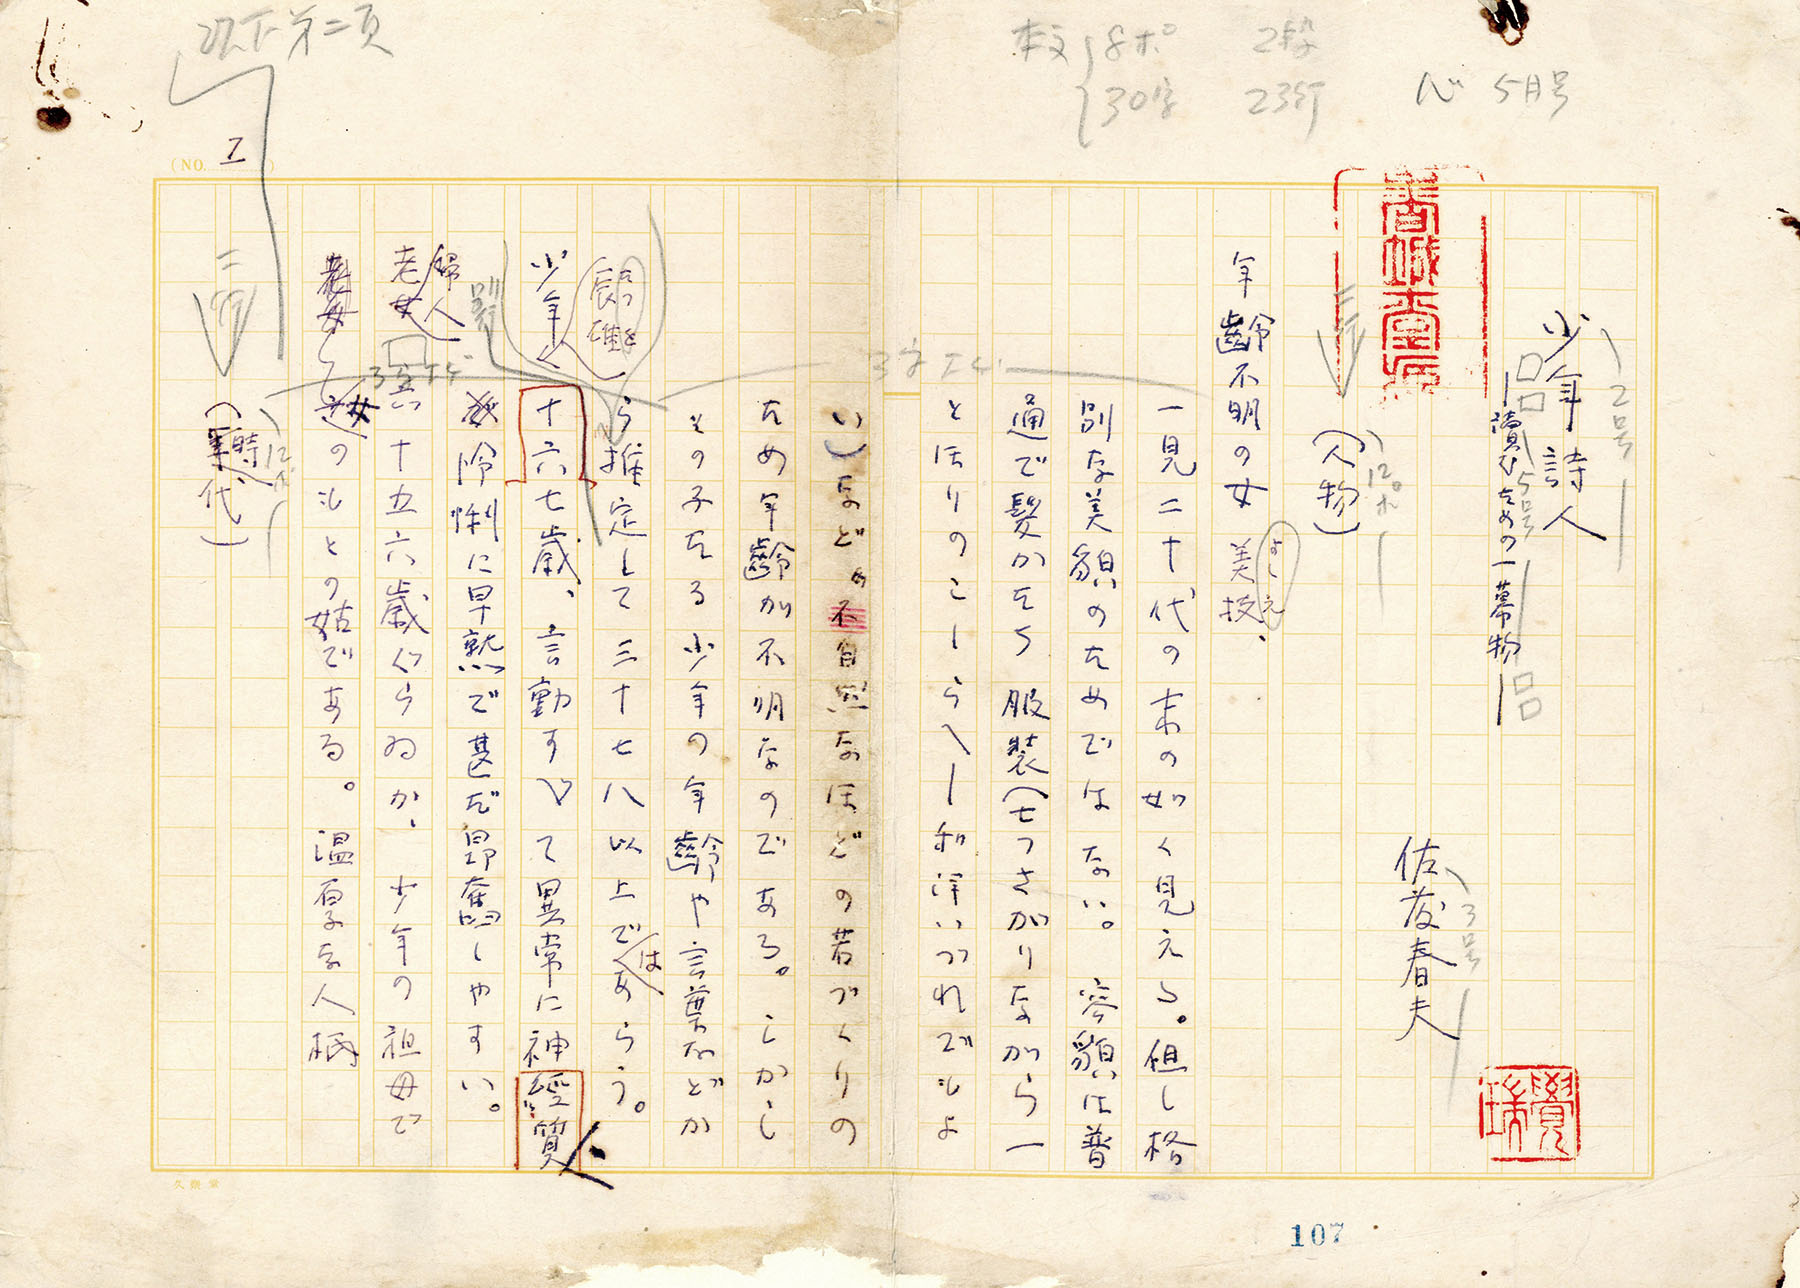 以下第二頁
本文 8ポ 2段
30字 23行
心 5月号
(NO. 1 )
2号
少年詩人
5号
讀むための一幕物
佐藤春夫
3号
12ポ
(人物)
三行
年齢不明の女 美技、
よしえ
3字下ゲ
一見二十代の末の如く見える。但し格
別な美貌のためではない。容貌は普
通で髪かたち 服装(七つさがりながら一
とほりのこしらへ―和洋いづれでもよ
い)などの不自然なほどの若づくりの
ため年齢が不明なのである。しかし
その子たる少年の年齢や言葉などか
ら推定して三十七八以上ではあらう。
少年
十六七歳、言動すべて異常に神經質
怜悧に早熟で甚だ昂奮しやすい。
別行
老婦人
3字下ゲ
六十五六歳ぐらゐか、少年の祖母で
女のもとの姑である。 温厚な人柄
12ポ
(時代)
二行
久樂堂
107